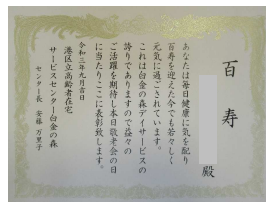 百寿
殿
あなたは毎日健康に気を配り
百寿を迎えた今でも若々しく
元気に過ごされています。
これは白金の森デイサービスの
誇りでありますので益々の
ご活躍を期待し本日敬老会の日
に当たりここに表彰致します。
令和三年九月吉日
港区立高齢者在宅
サービスセンター白金の森
センター長 安藤 万里子